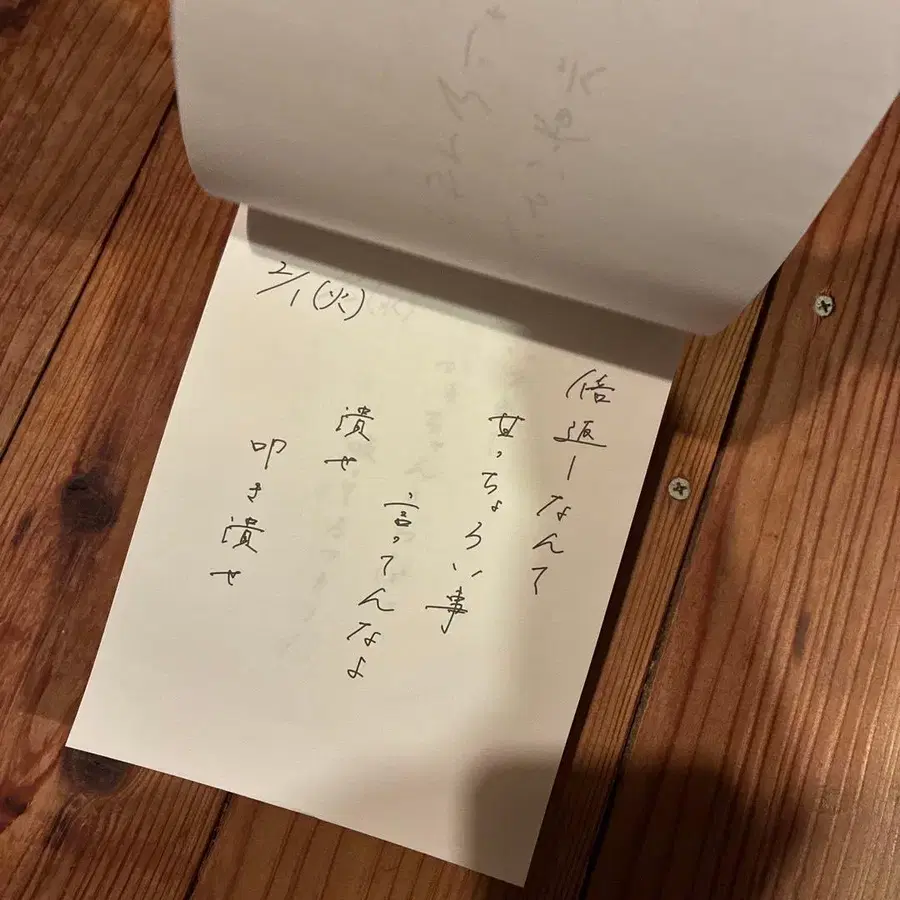 2/1(火)
倍返しなんて
甘っちょろい事
言ってんなよ
潰せ
叩き潰せ